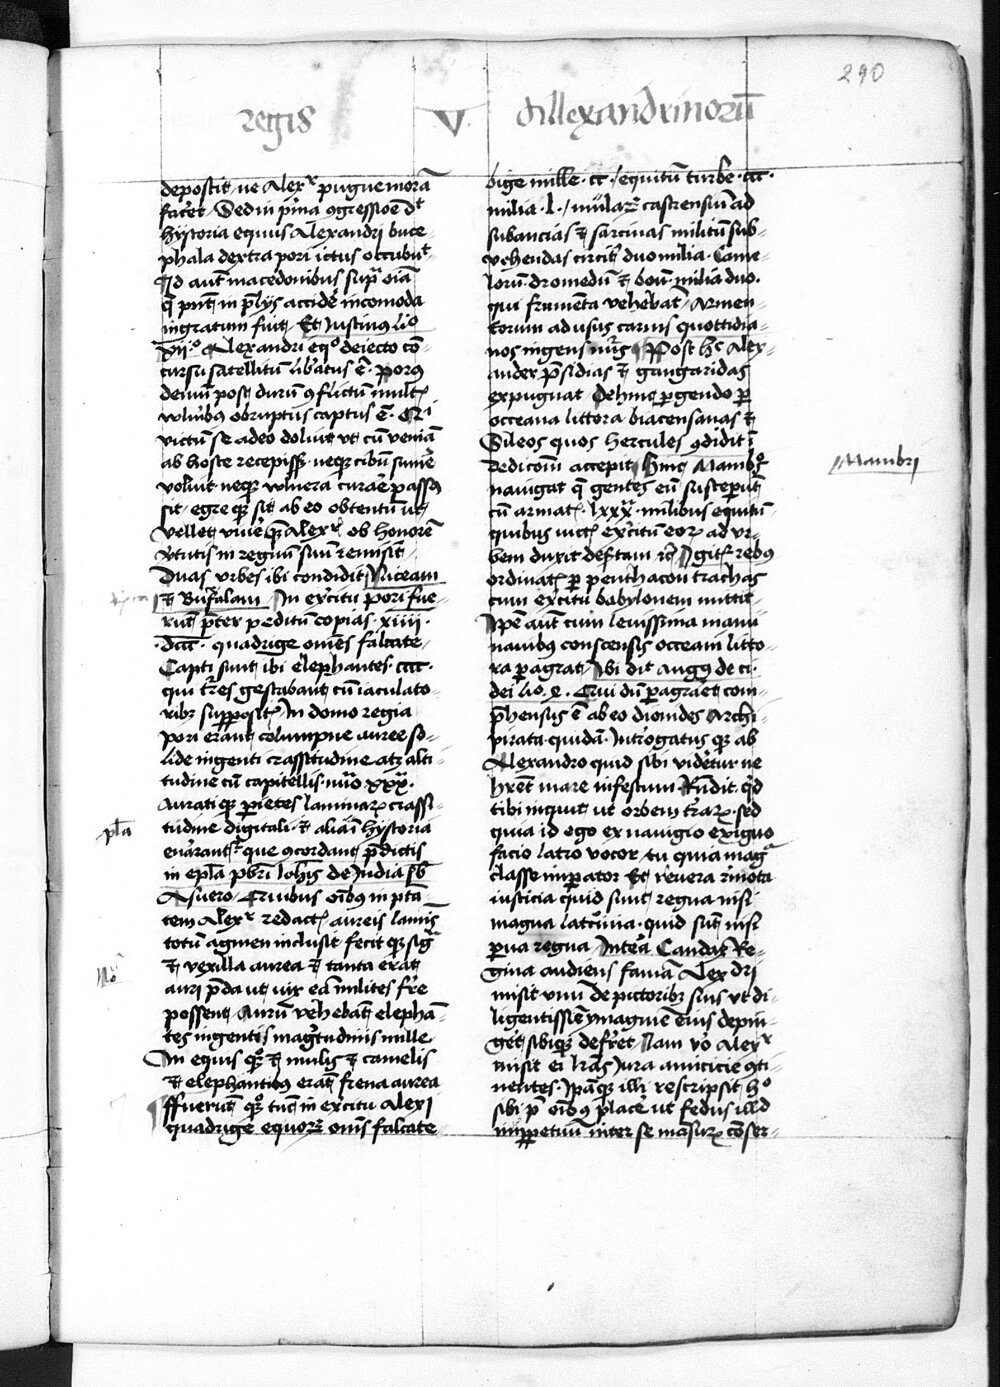 290
regis V Allexandrinorū
deposcit, ne Alexr pugne morā
facēt, Sed in p̄ma ꝯgressiōe dt
hystoria equus Alexandri buce-
phala dextra pori ictus occubut
Id aut macedonibus supra oīa
q̄ pnt in p̄lijs accidē incomoda
ingratum fuit, Et Justinus lio
xii.o Alexandri eqo deiecto cō-
cursu satellitū libatus ē. porus
demū post durū ꝯflictū mult
wlnibus obruptus captus ē. Qi
victū se adeo doluit vt cū veniā
ab hoste recepiss neqꝫ cibū sumē
voluit neqꝫ wlnera curaē passus
sit, egre qꝫ sit ab eo obtentū ut
vellet viuē quē Alexr ob honorē
v̄tutis in regnū suū remisit
Duas vrbes ibi condidit, Niceam
et Bufalam, In ex̄citu pori fue-
runt p̄ter peditū copias. xiiii.
.dccc. quadrige om̄es falcate
Capti sunt ibi elephantes. cccc.
qui tr̄es gestabant cū iaculato-
ribꝫ supposit, In domo regia
pori erant columpne auree so-
lide ingenti crassitudine atqꝫ alti-
tudine cū capitellis. nuo xxx.
Auratiqꝫ parietes laminaꝝ crassi-
tudine digitali. et aliam hystoria
enarant que ꝯcordant p̄dictis
pla
in epla pbri Johis de India sb
Asuero. Ciuibus oībus in ptā-
tem Alexr redact, aureis lamis
totū agmen inclusit fecit qꝫ sig
et vexilla aurea et tanta erat
No
auri p̄da ut vix eā milites fre
possent, Aurū vehebant elephā-
tes ingentis magtudinis mille
In equis qꝫ et mulis et camelis
et elephantibus erat frena aurea
ffuerut qꝫ tuc in ex̄citu Alexi
quadrige equoꝝ om̄s falcate
bige mille. cc. equitū turbe. ccc.
milia. l. mulaꝝ castrensiū ad
subancias et sarcinas militū sub-
vehendas circit duo milia. Came-
lorū dromedū et boū milia duo.
qui frumēta vehebat, Armen-
torum ad usus carnis quottidia-
nos ingens nus, Post hc Alex-
ander psidias et gangaridas
expugnat Dehinc pgendo p
occeana littora biacensanas et
Sileos quos hercules ꝯdidit ī
dedicom accepit, Hinc Mambros
nauigat q̄ gentes eū susceperut
Mambri
cū armat. lxxx. milibus equitū
quibus vict ex̄citum eoꝝ ad vr-
bem duxit desertam ic, Igit rebus
ordinat p penthacon trachas
cum ex̄citu babylonem mittit.
Ipē aut cum leuissima manu
nauibus conscensis occeani litto-
ra pagrat, Ibi dit Augus de ci.
dei lio. q. Cui dū pagraet com-
phensus ē ab eo dionides Archi-
pirata quidā. Introgatus qꝫ ab
Alexandro quid sibi videtur ne
hret mare infestum Rndit. qd
tibi inquit ut orbem traꝝ. sed
quia id ego ex nauigio exiguo
facio latro vocor, tu quia mag
classe impator Et reuera rmota
iusticia quid sunt regna nisi
magna latronia. quid sut nisi
pua regna, Intea Candax Re-
gina audiens famā Alex dri
misit vnū de pictoribꝫ suis vt di-
ligentissie ymaginē eius depin-
get sibiqꝫ defret, Iam vo Alexr
misit ei lras iura amicicie ꝯti-
nentes. Ipaqꝫ illi rescripsit ho
sibi p̄ oībus place ut fedus illd
imppetuū inter se mansuꝝ conser-